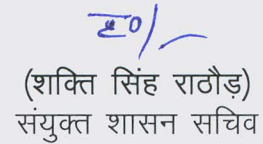 ह०/
(शक्ति सिंह राठौड़)
संयुक्त शासन सचिव